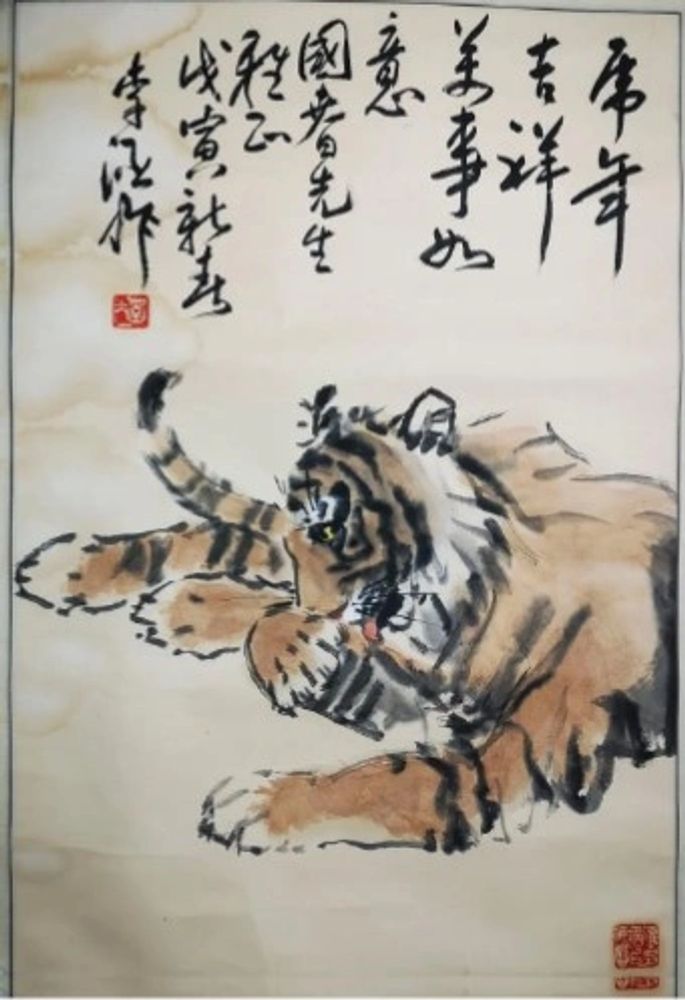 虎年
吉祥
萬事如
意
國春先生
雅正
戊寅新春
李
作